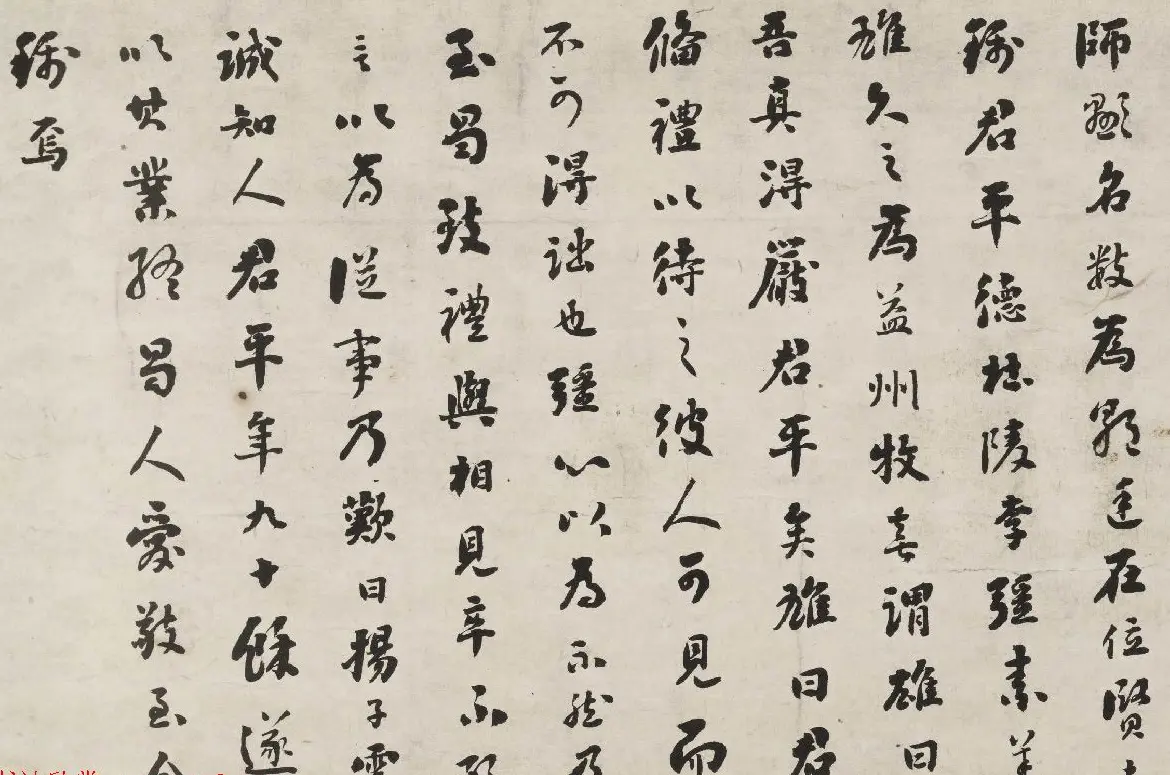 師顯名數為朝廷在位賢
稱君平德杜陵李彊素善
雄久之為益州牧喜謂雄曰
吾真得嚴君平矣雄曰君
備禮以待之彼人可見而
不可得詘也彊心以為不然乃
至蜀致禮與相見卒不敢
言以為從事乃歎曰揚子雲
誠知人君平年九十餘遂
以其業終蜀人愛敬至今
稱焉